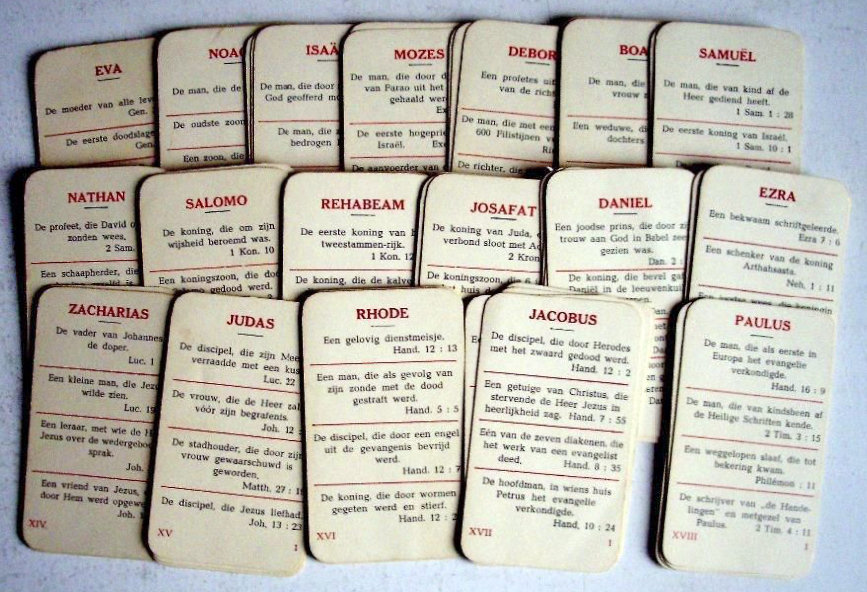 EVA
De moeder van alle
Gen.
De eerste
Gen.
De man, die de
De oudste
Een zoon, die
De man, die door
God geofferd
De man, die
bedrogen
MOZES
De man, die door d
van Farao uit het
gehaald
De eerste
Israël.
De aanvoerder van
Een profetes uit
van de
De man, die met een
600 Filistijnen
De richter, die
De man, die
vrouw
Een weduwe, die
dochters
SAMUËL
De man, die van kind af de
Heer gediend heeft.
1 Sam. 1 : 28
De eerste koning van Israël.
1 Sam. 10 : 1
NATHAN
De profeet, die David
zonden wees.
2 Sam.
Een schaapherder, die
SALOMO
De koning, die om zijn
wijsheid beroemd was.
1 Kon. 10
Een koningszoon, die
gedood werd.
REHABEAM
De eerste koning van
tweestammen-rijk.
1 Kon. 12
De koning, die de
JOSAFAT
De koning van Juda,
verbond sloot met
2 Kron
De koningszoon, die 6
DANIEL
Een joodse prins, die door
trouw aan God in Babel
gezien was.
Dan. 2 :
De koning, die bevel
Daniël in de
EZRA
Een bekwaam schriftgeleerde.
Ezra 7 : 6
Een schenker van de koning
Arthahsasta.
Neh. 1 : 11
ZACHARIAS
De vader van Johannes
de doper.
Luc. 1
Een kleine man, die
wilde zien.
Luc. 19
Een leraar, met wie de H
Jezus over de
sprak.
Joh.
Een vriend van Jezus,
door Hem werd
Joh.
XIV.
JUDAS
De discipel, die zijn
verraadde met een
Luc. 22
De vrouw, die de Heer
vóór zijn begrafenis.
Joh. 12
De stadhouder, die door
vrouw gewaarschuwd is
geworden.
Matth. 27 :
De discipel, die Jezus liefhad.
Joh. 13 : 23
XV
1
RHODE
Een gelovig dienstmeisje.
Hand. 12 : 13
Een man, die als gevolg van
zijn zonde met de dood
gestraft werd.
Hand. 5 : 5
De discipel, die door een engel
uit de gevangenis bevrijd
werd.
Hand. 12 : 7
De koning, die door wormen
gegeten werd en stierf.
Hand. 12 : 2
XVI
JACOBUS
De discipel, die door Herodes
met het zwaard gedood werd.
Hand. 12 : 2
Een getuige van Christus, die
stervende de Heer Jezus in
heerlijkheid zag. Hand. 7 : 55
Eén van de zeven diakenen, die
het werk van een evangelist
deed. Hand. 8 : 35
De hoofdman, in wiens huis
Petrus het evangelie
verkondigde.
Hand. 10 : 24
XVII
1
PAULUS
De man, die als eerste in
Europa het evangelie
verkondigde.
Hand. 16 : 9
De man, die van kindsbeen af
de Heilige Schriften kende.
2 Tim. 3 : 15
Een weggelopen slaaf, die tot
bekering kwam.
Philémon : 11
De schrijver van „de Hande-
lingen" en metgezel van
Paulus. 2 Tim. 4 : 11
XVIII
1